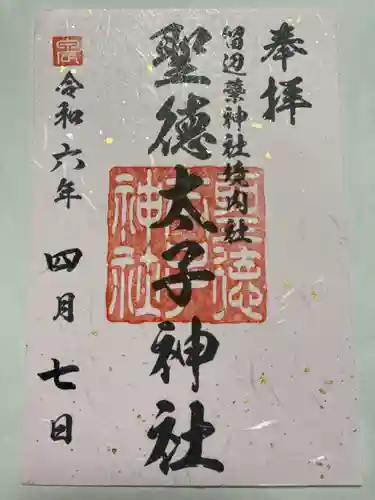 奉拝
留辺蘂神社境内社
聖徳太子神社
令和六年 四月 七日
聖徳太子神社